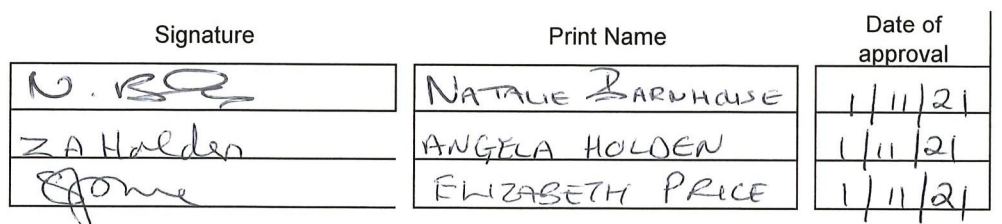 Signature Print Name Date of approval
N. NATALIE BARNHOUSE 1/11/21
ZA Holden ANGELA HOLDEN 1/11/21
ELIZABETH PRICE 1/11/21